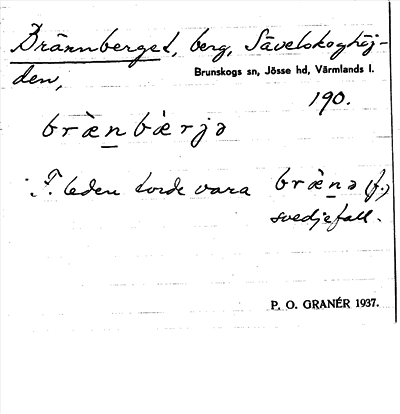 Brännberget, berg, Sävelskoghöj-
den,
Brunskogs sn, Jösse hd, Värmlands l.
190.
bræ̀n̲bæ̀rjə
F. leden torde vara bræ̀n̲ə (f.)
svedjefall.
P. O. GRANÉR 1937.